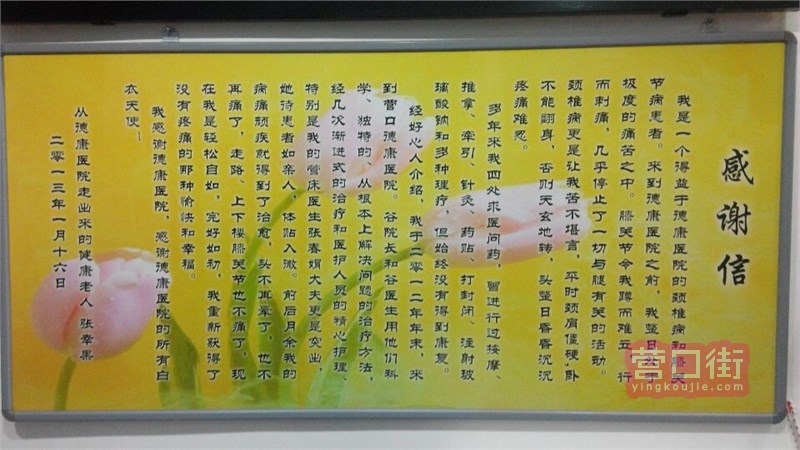 感谢信
我是一个得益于德康医院的颈椎病和膝关
节病患者。来到德康医院之前，我整日处于
极度的痛苦之中。膝关节令我蹲而难立，行
而刺痛，几乎停止了一切与腿有关的活动。
颈椎病更是让我苦不堪言，平时颈肩僵硬，卧
不能翻身，否则天玄地转，头整日昏昏沉沉
疼痛难忍。
多年来我四处求医问药，曾进行过按摩、
推拿、牵引、针灸、药贴、打封闭、注射玻
璃酸钠和多种理疗，但始终没有得到康复。
经好心人介绍，我于二零一二年年末，来
到营口德康医院。谷院长和谷医生用他们科
学、独特的、从根本上解决问题的治疗方法，
经几次渐进式的治疗和医护人员的精心护理、
特别是我的管床医生张春娟大夫更是突出，
她待患者如亲人，体贴入微。前后月余我的
病痛顽疾就得到了治愈，头不再晕了，也不
再痛了，走路、上下楼膝关节也不痛了。现
在我是轻松自如，完好如初，我重新获得了
没有疼痛的那种愉快和幸福。
我感谢德康医院，感谢德康医院的所有白
衣天使！
从德康医院走出来的健康老人 张幸果
二零一三年一月十六日
营口街
yingkoujie.com